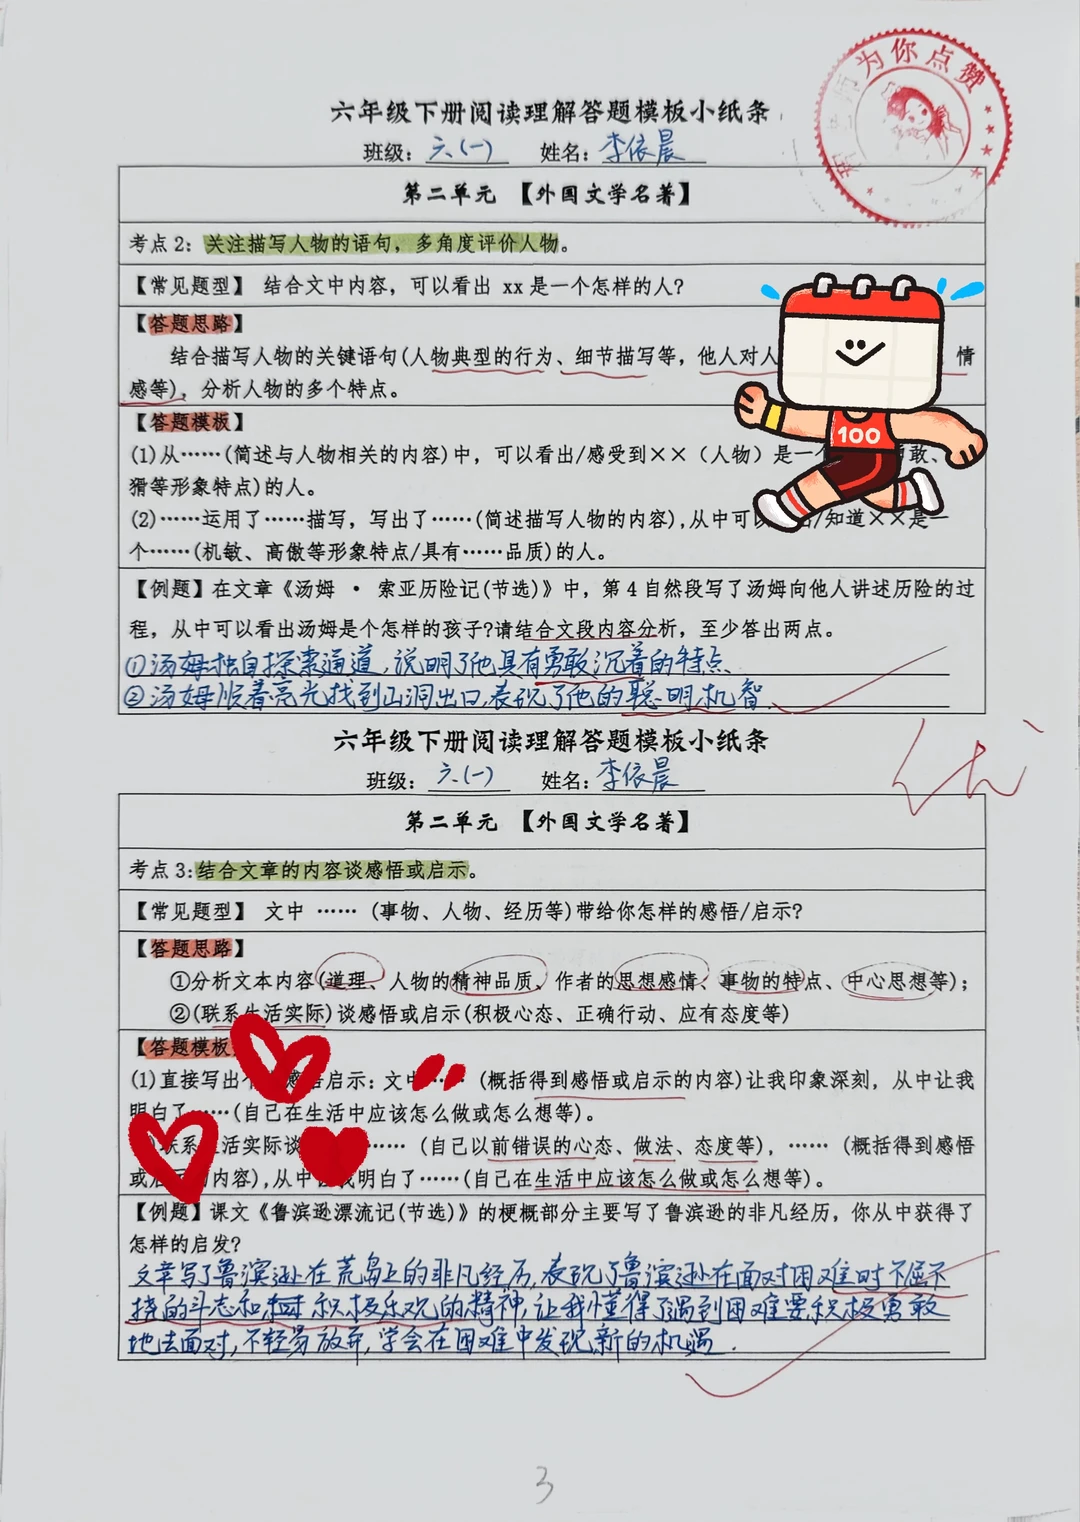 为你点赞
六年级下册阅读理解答题模板小纸条
班级：六.(一) 姓名：李依晨
第二单元 【外国文学名著】
考点2：关注描写人物的语句，多角度评价人物。
【常见题型】 结合文中内容，可以看出 xx是一个怎样的人？
【答题思路】
结合描写人物的关键语句(人物典型的行为、细节描写等，他人对人 情
感等)，分析人物的多个特点。
【答题模板】
(1)从……(简述与人物相关的内容)中，可以看出/感受到××（人物）是一 敢、
猾等形象特点)的人。
(2)……运用了……描写，写出了……(简述描写人物的内容),从中可 /知道××是一
个……(机敏、高傲等形象特点/具有……品质)的人。
100
【例题】在文章《汤姆·索亚历险记(节选)》中，第4自然段写了汤姆向他人讲述历险的过
程，从中可以看出汤姆是个怎样的孩子?请结合文段内容分析，至少答出两点。
①汤姆独自探索通道,说明了他具有勇敢沉着的特点、
②汤姆顺着亮光找到山洞出口,表现了他的聪明,机智.
六年级下册阅读理解答题模板小纸条
优
班级：六.(一) 姓名：李依晨
第二单元 【外国文学名著】
考点3:结合文章的内容谈感悟或启示。
【常见题型】 文中 …… (事物、人物、经历等)带给你怎样的感悟/启示?
【答题思路】
①分析文本内容(道理、人物的精神品质、作者的思想感情、事物的特点、中心思想等)；
②(联系生活实际)谈感悟或启示(积极心态、正确行动、应有态度等)
【答题模板
(1)直接写出 启示：文中…… (概括得到感悟或启示的内容)让我印象深刻，从中让我
明白了……(自己在生活中应该怎么做或怎么想等)。
联系 活实际谈 …… (自己以前错误的心态、做法、态度等)，…… (概括得到感悟
或 内容),从中 我明白了……(自己在生活中应该怎么做或怎么想等)。
【例题】课文《鲁滨逊漂流记(节选)》的梗概部分主要写了鲁滨逊的非凡经历，你从中获得了
怎样的启发?
文章写了鲁滨逊在荒岛上的非凡经历,表现了鲁滨逊在面对困难时不屈不
挠的斗志和 积极乐观的精神,让我懂得了遇到困难要积极勇敢
地去面对,不轻易放弃,学会在困难中发现新的机遇.
3